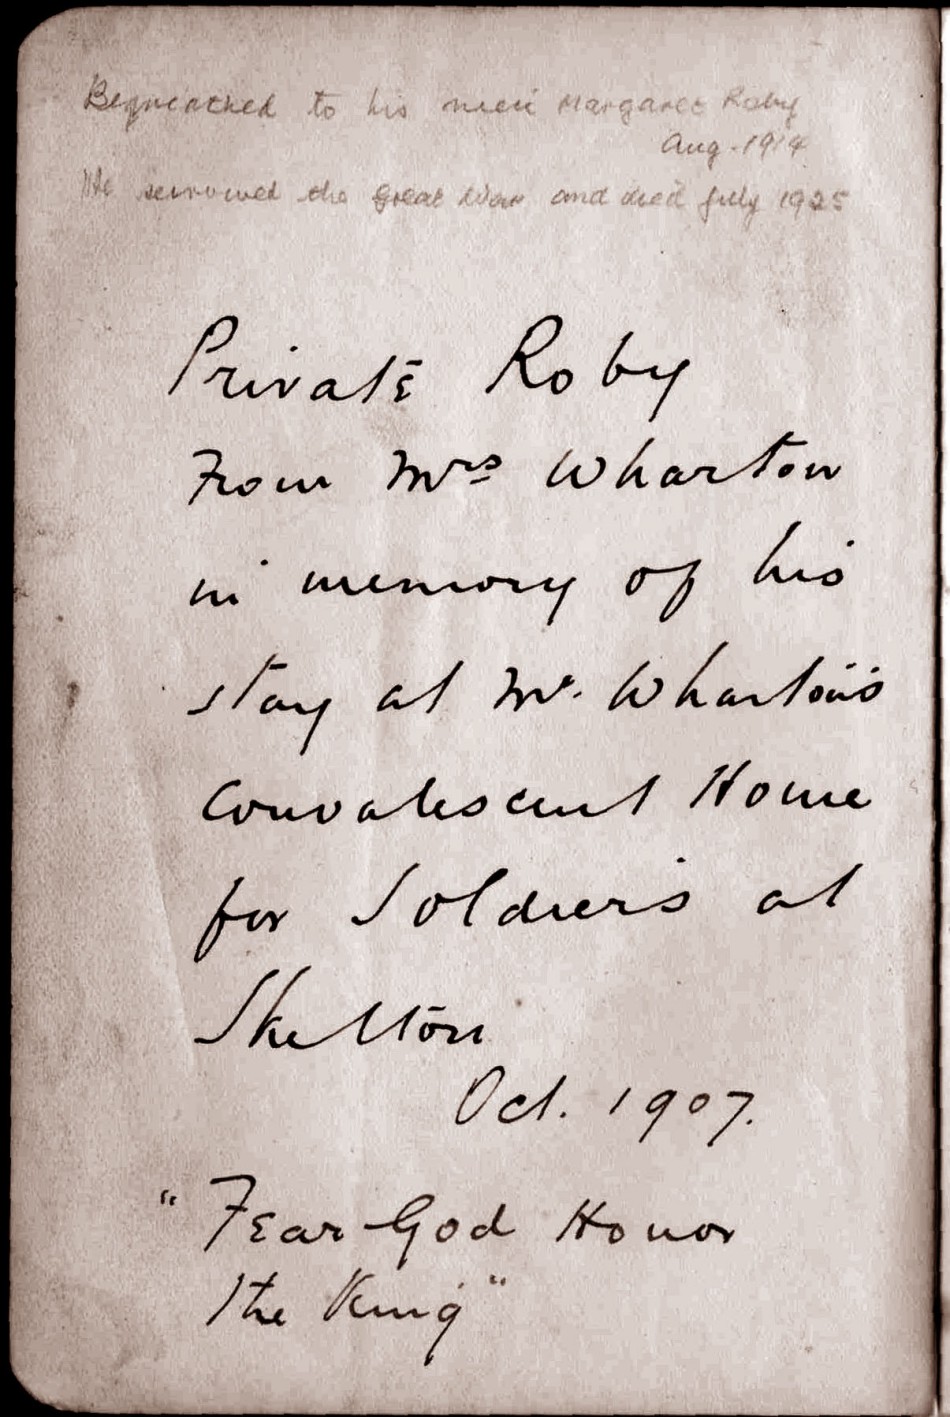 Bequeathed to his niece Margaret Roby
Aug. 1914
He survived the great War and died July 1925
Private Roby
From Mrs Wharton
in memory of his
stay at Mr. Wharton's
Convalescent Home
for Soldiers at
Skelton
Oct. 1907.
"Fear God Honor
the King"